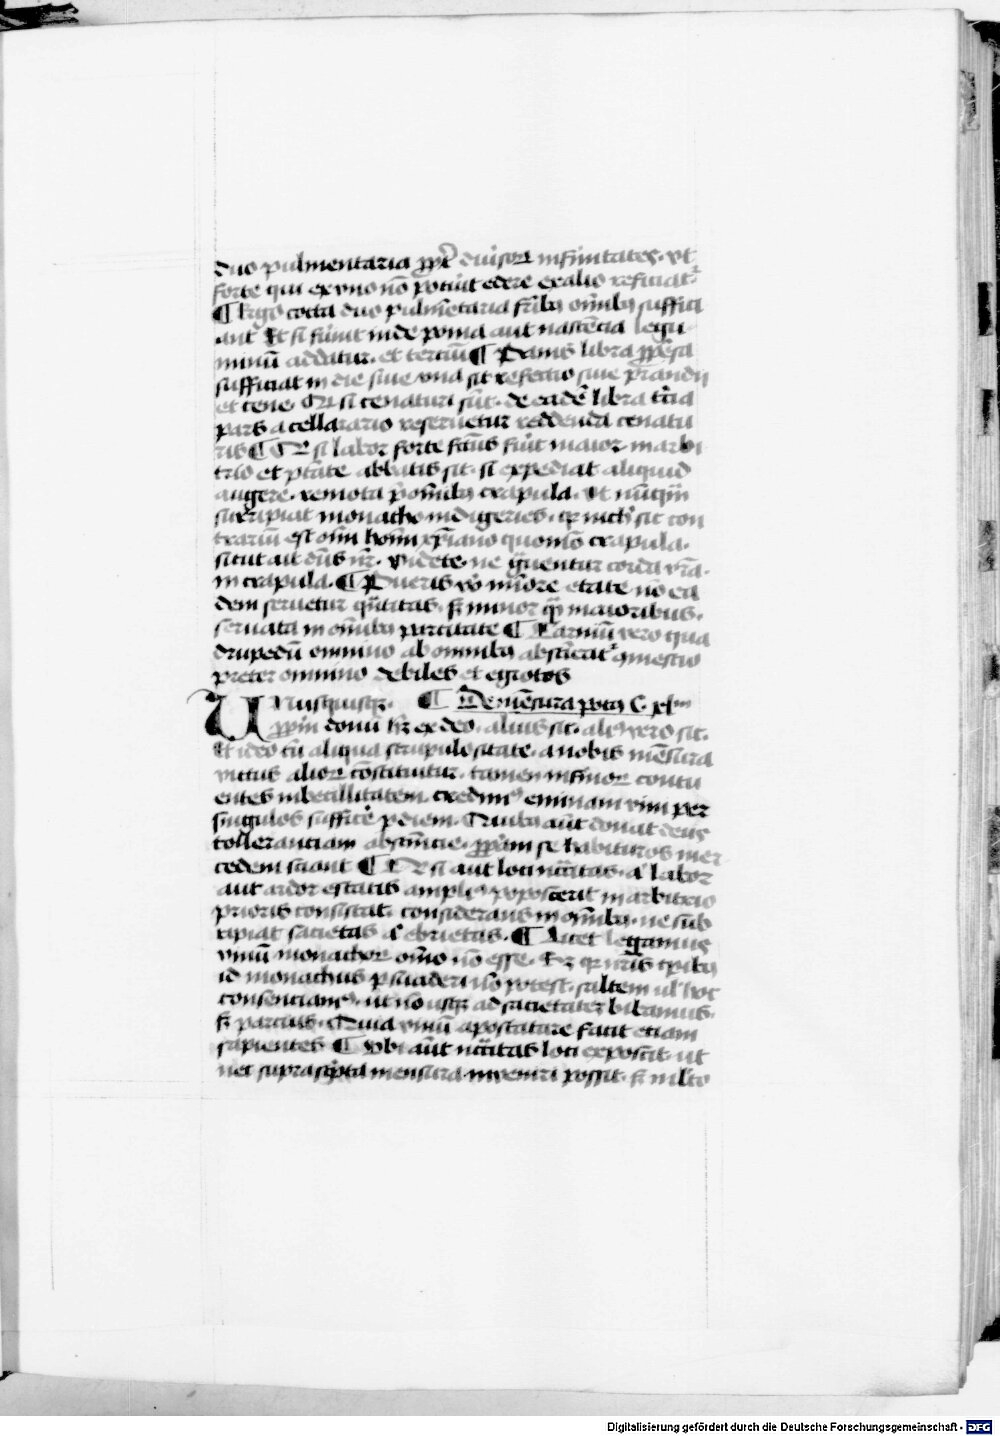 duo pulmentaria ꝓpt̄ diuſoꝝ infirmitates. vt
forte qui ex vno nō potūit edere ex alio reficiat᷑
¶ Ergo cocta duo pulmētaria frīb9 om̄ib9 suffici
ant Et si fūint inde poma aut nascētia legu
minū addatur. et terciū ¶ Panis libra ꝓpēsa
sufficiat in die siue vna sit refectio siue prandij
et cene. Qr̄ si cenaturi sūt. de eadē libra t̄cia
pars a cellarario reseruetur reddenda cenatu
ris ¶ Qr̄ si labor forte fc̄us fūit maior in arbi
trio et ptāte abbatis sit. si expediat aliquid
augere. remota p̄ om̄ib9 crapula. vt nūꝙm̄
surripiat monacho indigeries. qꝛ nich̄ sic con
trariū est om̄i homī xp̄iano quomō crapula.
sicut ait dn̄s nr̄. videte. ne gͣuentur corda vr̄a.
in crapula. ¶ Pueris vͦ minore etate nō ea
dem seruetur qͣntitas. sꝫ minor qͣm maioribus.
seruata in om̄ib9 parcitate ¶ Carniū vero qua
drupedū omnino ab omnib9 abstīeat᷑ 9mestio
preter omnino debiles et egrotos
Vnusquisqꝫ. ¶ De mēsura pot9 C. xlm̄
ꝓpriū donū hꝫ ex deo. alius sic. ali9 vero sic.
Et ideo cū aliqua scrupulositate. a nobis mēsura
victus alioꝝ cōstituitur. tamen infirmoꝝ contu
entes inbecillitatem. credim9 eminam vini per
singulos suffic̄e p diem. Quib9 aūt donat deus
tollerantiam abstīncie. ꝓpriam se habituros mer
cedem sciant ¶ Qr̄ si aut loci nc̄citas. aͭ labor
aut ardor estatis ampli9 poposcerit in arbitrio
prioris consistat. considerans in om̄ib9. ne sub
ripiat sacietas aͭ ebrietas. ¶ Licet legamus
vinū monachoꝝ om̄o nō esse. Sꝫ qꝛ nr̄is tp̄ib9
id monachus p̄suaderi nō potest. saltem ul̓ hoc
consenciam9. ut nō usqꝫ ad sacietatē bibamus.
sꝫ parcius. Quia vinū apostatare facit etiam
sapientes ¶ Vbi aūt nc̄citas loci exposcit. ut
nec suprascͥpta mensura inveniri possit. sꝫ ml̓to
Digitalisierung gefördert durch die Deutsche Forschungsgemeinschaft - DFG